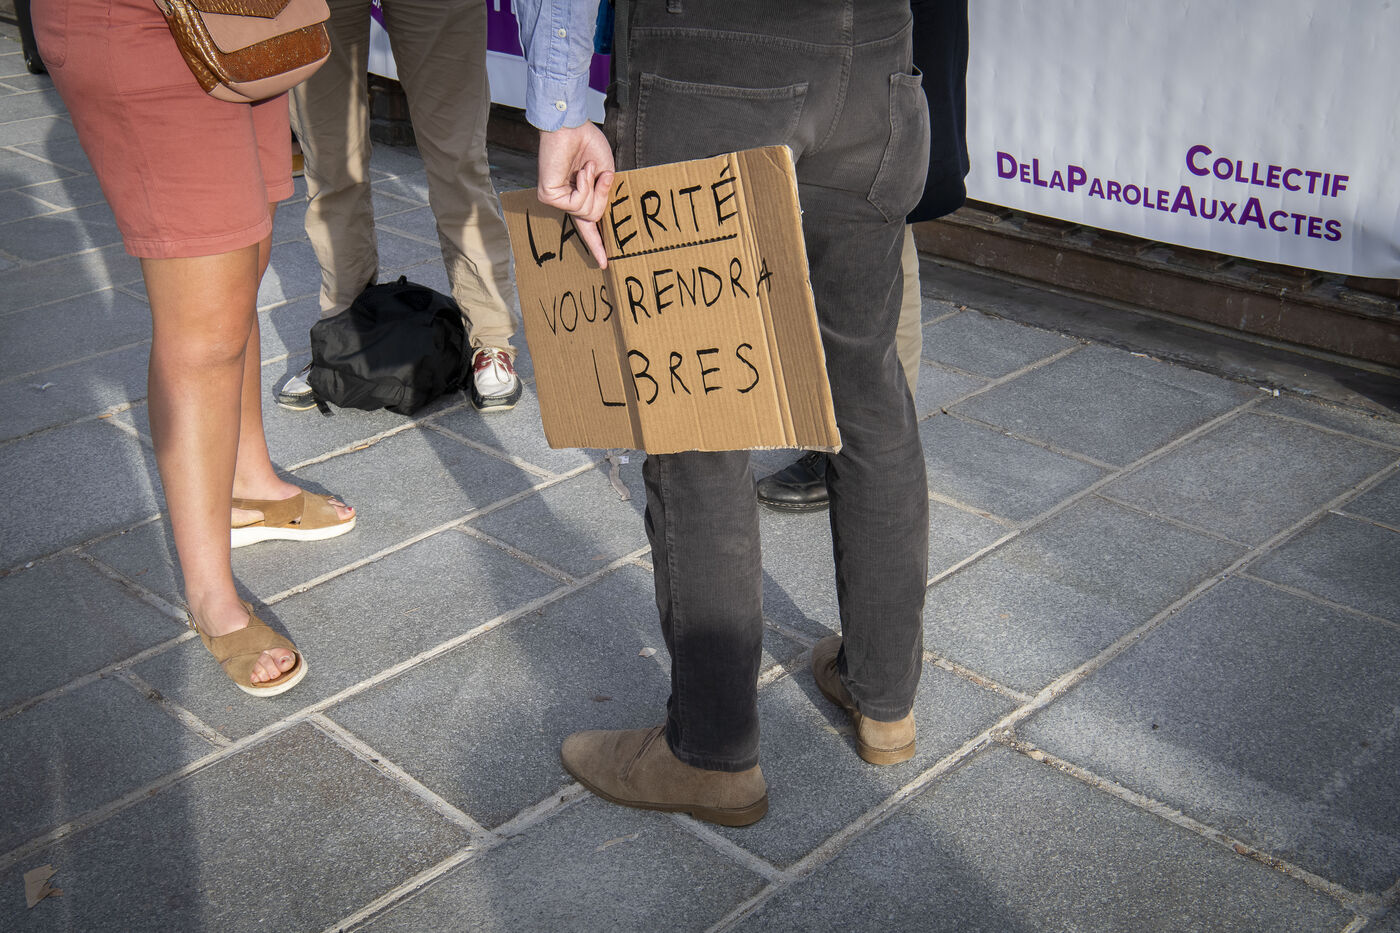 LA VÉRITÉ
VOUS RENDRA
LIBRES
COLLECTIF
DELAPAROLEAUXACTES